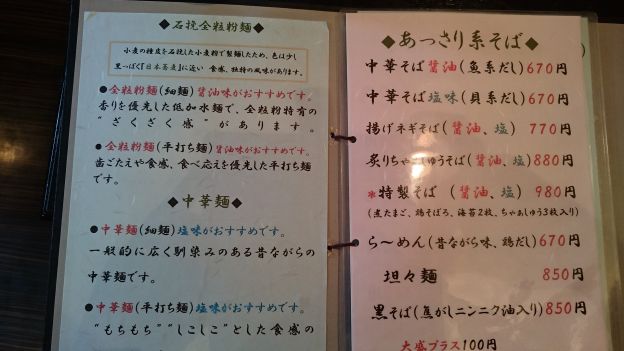 ◆石挽全粒粉麺◆
小麦の種皮を石挽した小麦粉で製麺したため、色は少し
黒っぽく『日本蕎麦』に近い 食感、独特の風味があります。
●全粒粉麺(細麺)醤油味がおすすめです。
香りを優先した低加水麺で、全粒粉特有の
“ざくざく感”があります。
●全粒粉麺(平打ち麺)醤油味がおすすめです。
歯ごたえや食感、食べ応えを優先した平打ち麺
です。
◆中華麺◆
●中華麺(細麺)塩味がおすすめです。
一般的に広く馴染みのある昔ながらの
中華麺です。
●中華麺(平打ち麺)塩味がおすすめです。
“もちもち”“しこしこ”とした食感の
◆あっさり系そば◆
中華そば醤油(魚系だし)670円
中華そば塩味(貝系だし)670円
揚げネギそば(醤油、塩) 770円
炙りちゃあしゅうそば(醤油、塩)880円
*特製そば (醤油、塩) 980円
(煮たまご、鶏そぼろ、海苔2枚、ちゃあしゅう3枚入り)
ら～めん(昔ながら味、鶏だし)670円
坦々麺 850円
黒そば(焦がしニンニク油入り)850円
大盛プラス100円